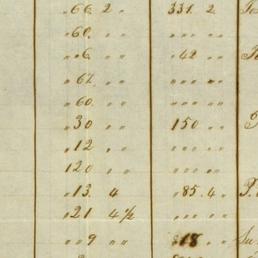 „ 66 2 „ 331 2 To
„ 60 „ „ „ „ „ „
„ „ 6 „ „ „ 42 „ „
„ 67 „ „ „ „ „ „
„ 60 „ „ „ „ „ „
„ 30 „ „ 150 „ „
„ 12 „ „ „ „ „ „
120 „ „ „ „ „ „
„ 13 4 „ 85 4
„ 21 4½ „ „ „ „ „
„ „ 9 „ „ „ 18 „ „